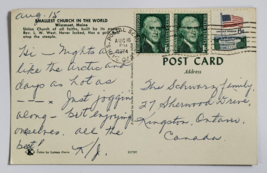 Aug 13
SMALLEST CHURCH IN THE WORLD
Wiscasset, Maine
Union Church of all faiths, built by its
Rev. L. W. West. Never locked, has a
step the people.
Hi - Nights
like the Arctic and
days as hot as
--- Just joggin
along - But enjoying
ourselves. all the
best!
AUG
PM
1974
POST CARD
Address
The Schwarz family,
27 Sherwood Drive,
Kingston, Ontario
Canada